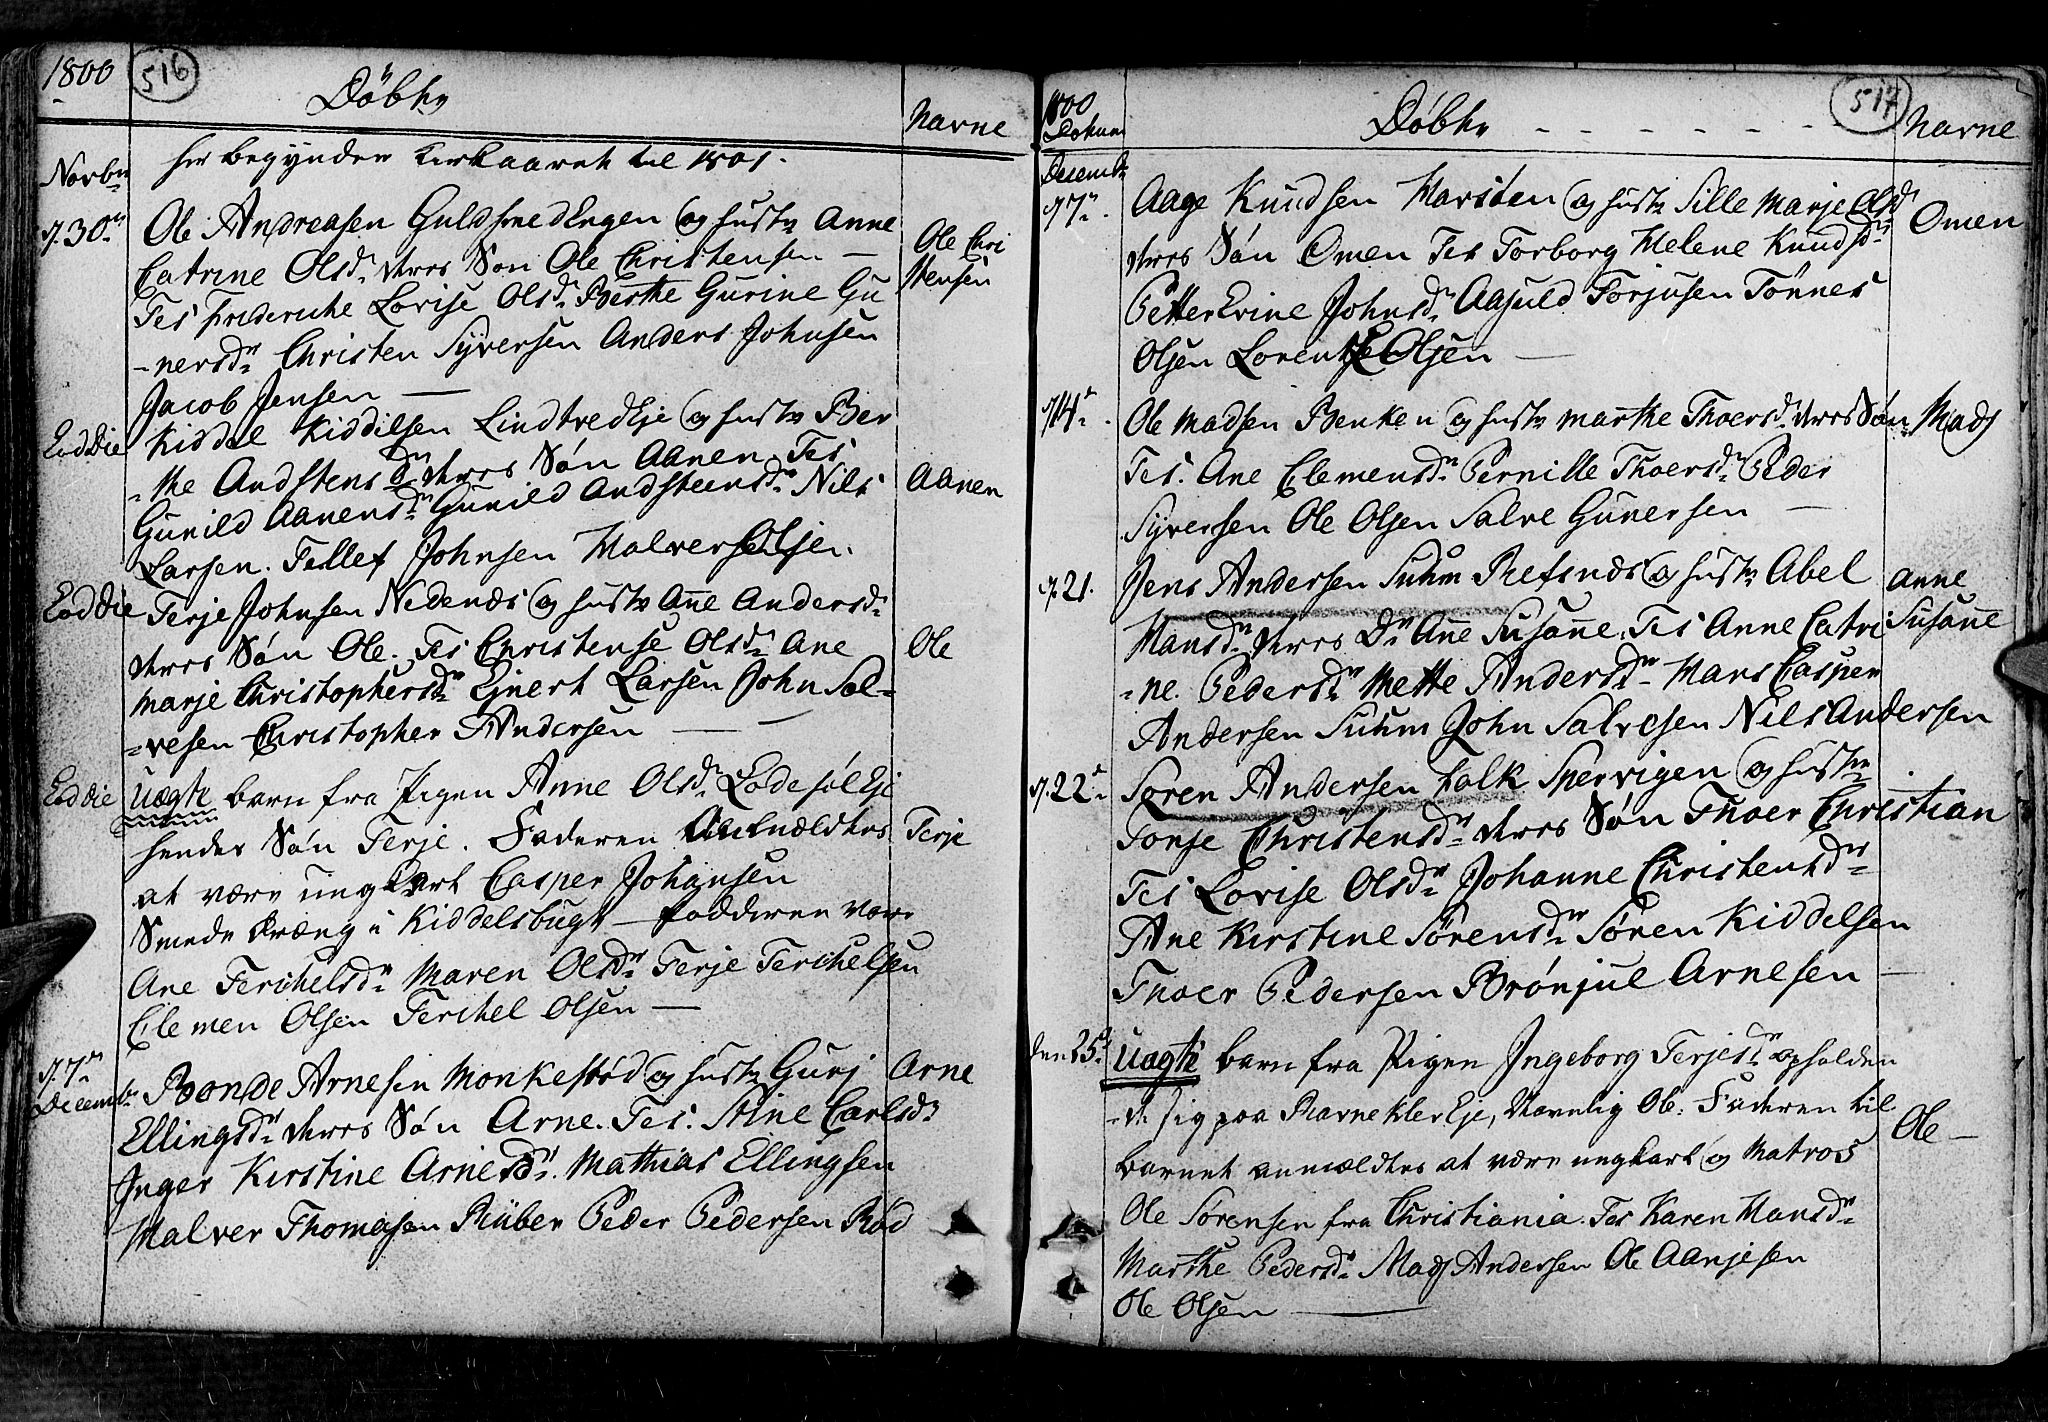 1800 516
Döbte
Navne
Novbr
her begynder Kirkaaret til 1801.
d. 30te
Ole Andreasen Guldsmedengen og hustr Anne
Catrine Olsdr. deres Søn Ole Christensen —
Ole Chri
stensen
Tes Frideriche Lovise Olsdr. Berthe Gurine Gu
-nersdr Christen Syversen Anders Johnsen
Jacob Jensen —
Eod Die
Kiddel Kiddilsen Lindtvedeje og hustr Ber
-the Andstensdr deres Søn Aanen Tes
Aanen
Gunild Aanensdr Gunild Andsteensdr. Nils
Larsen. Tellef Johnsen Halver Olsen.
Eod Die
Terje Johnsen Nedenæs og hustr Anne Andersdr.
deres Søn Ole. Tes Christense Olsdr. Ane
Ole
Marje Christophersdr. Ejnert Larsen John Sal-
-vesen Christopher Andersen —
Eod Die
Uægte barn fra Pigen Anne Olsdr. Lødesøl Eje
hendes Søn Terje. Faderen Anmældtes
Terje
at være ungkarl Casper Johansen
Smede Dræng i Kiddelsbugt — Fadderne vare
Ane Terchelsdr. Maren Olsdr. Terje Terchelsen
Clemen Olsen Terchel Olsen —
d. 7de
Decembr
Bonde Arnesen Monkestød og hustr Gurj
Arne
Ellingsdr. deres Søn Arne. Tes. Stine Carlsdr
Inger Kirstine Arnesdr. Mathias Ellingsen
Halver Thomasen Rüber Peder Pedersen Rød
1800
517
Döbte - - - - - - -
Navne
Decembr
d 7de.
Aage Knudsen Harsten og hustr Sille Marje Olsdr
Omen
deres Søn Omen Tes Torborg Helene Knudsdr.
Petter Erine Johnsdr. Aasuld Torjusen Tønnes
Olsen Lorents Olsen —
d 14de.
Ole Madsen Benken og hustr Marthe Thoersdr. deres Søn
Mads
Tes. Ane Clemensdr. Pernille Thoersdr. Peder
Syversen Ole Olsen Salve Gunersen —
d. 21.
Jens Andersen Suhm Refsnæs og hustr Abel
Anne
Susanne
Hansdr deres Dr. Anne Susanne. Tes Anne Catri
-ne. Pedersdr Mette Andersdr. Hans Casper
Andersen Suhm John Salvesen Nils Andersen
d. 22de
Søren Andersen Falk Spervigen og hustr
Tonje Christensdr. deres Søn Thoer Christian
Tes Lovise Olsdr. Johanne Christensdr.
Ane Kirstine Sørensdr. Søren Kiddelsen
Thoer Pedersen Brønjul Arnesen —
den 25de
Uægte barn fra Pigen Ingeborg Terjesdr. opholden
-de sig paa Biarnekler Eje, Navnlig Ole. Faderen til
Ole —
Barnet anmældtes at være ungkarl og Matros
Ole Sørensen fra Christiania. Tes Karen Hansdr.
Marthe Pedersdr. Mads Andersen Ole Aanjesen
Ole Olsen —